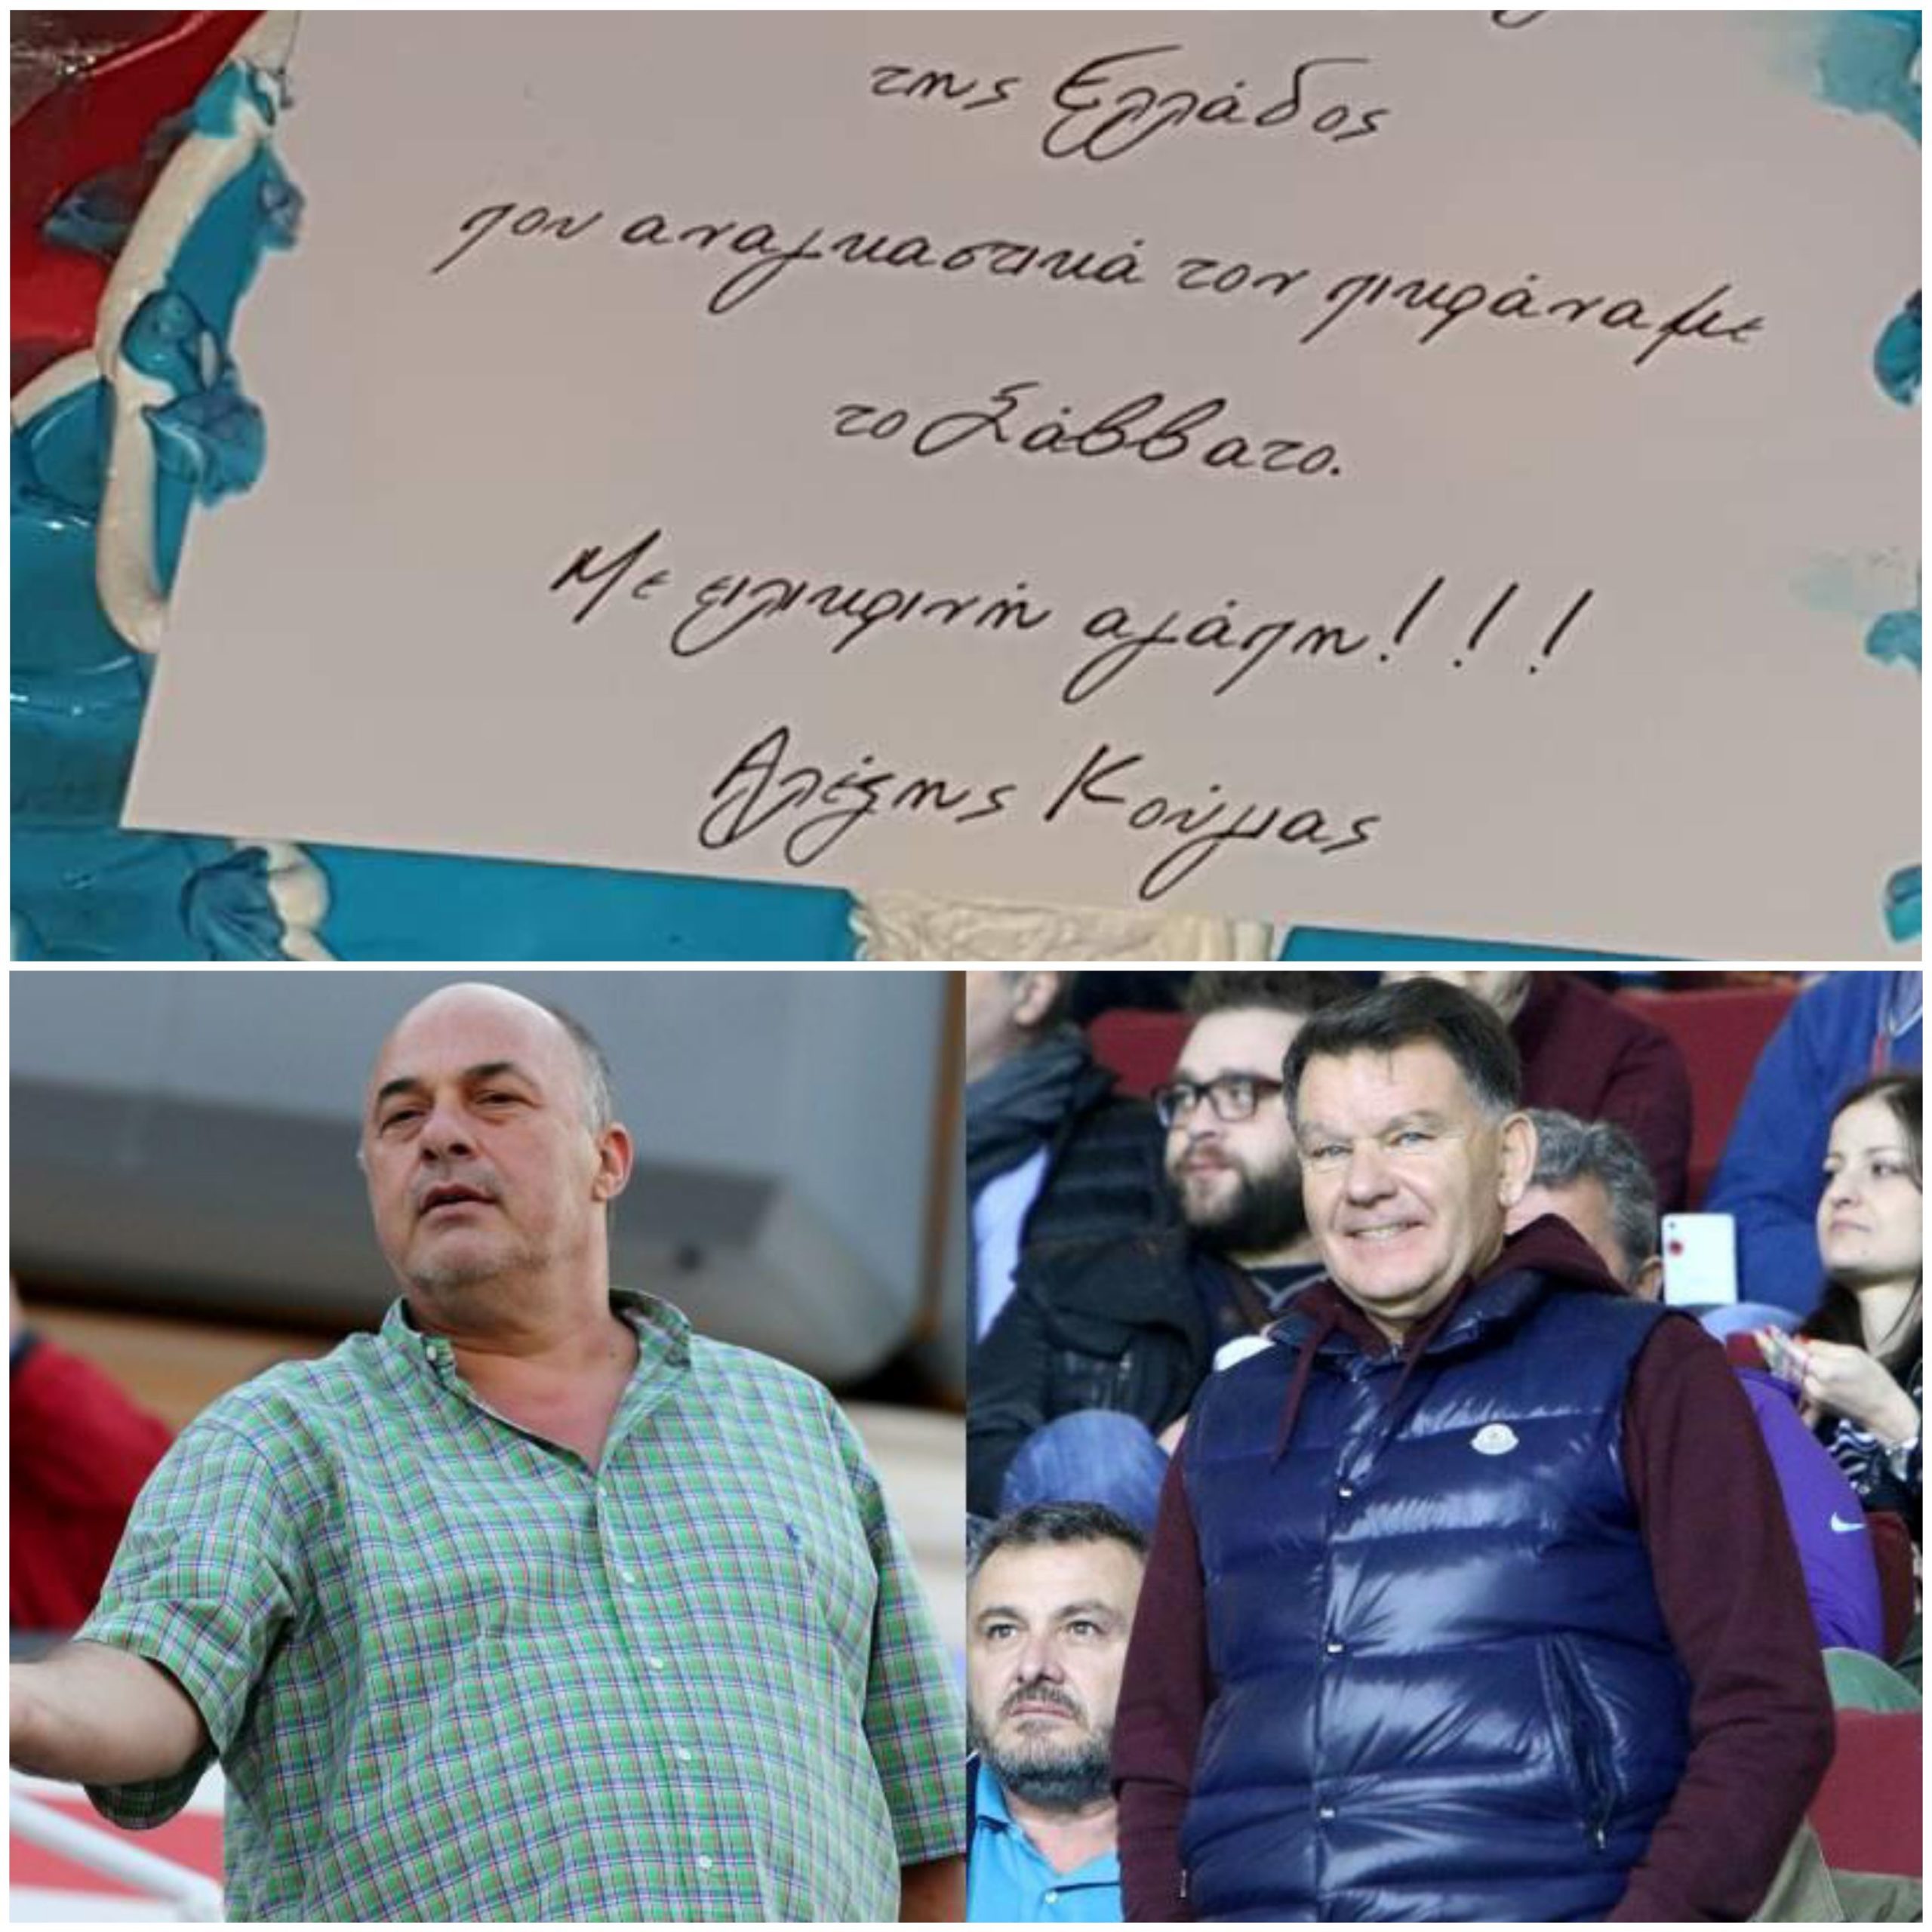 της Ελλάδος
που αναγκαστικά τον πικράναμε
το Σάββατο.
Με ειλικρινή αγάπη!!!
Αλέξης Κούγιας